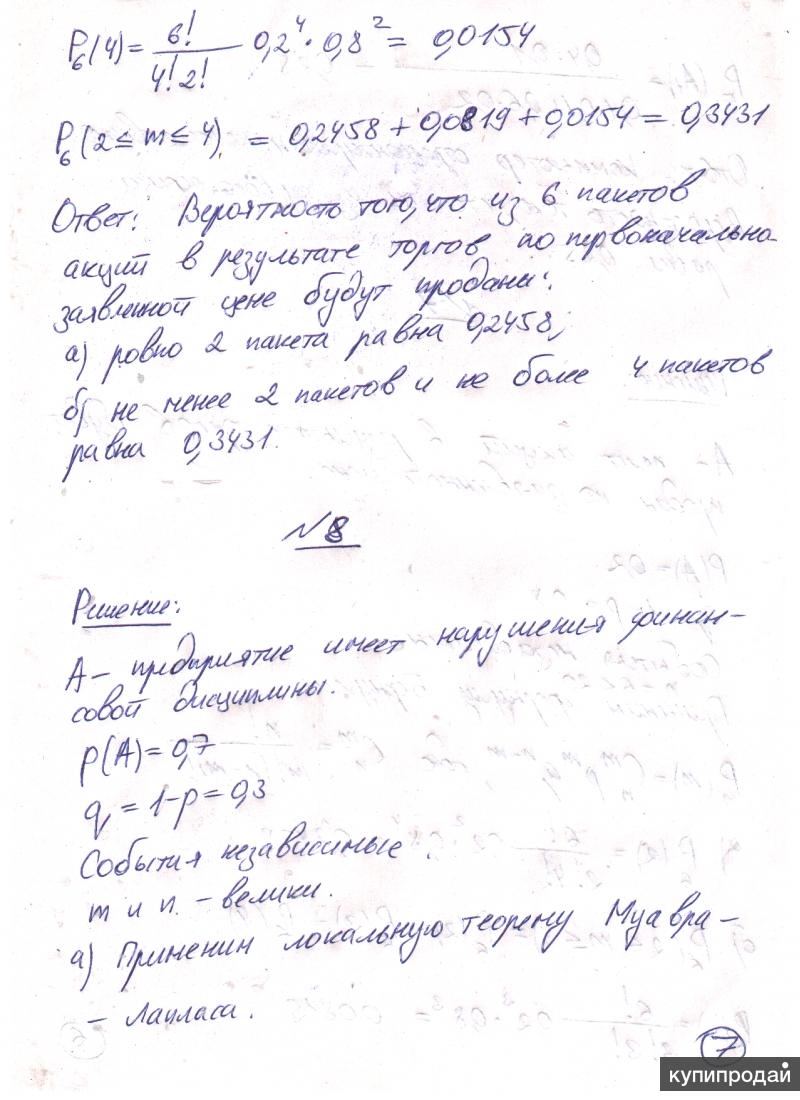 P₆(4) = 6!/(4! 2!) 0,2⁴ · 0,8² = 0,0154
P₆(2 ≤ m ≤ 4) = 0,2458 + 0,0819 + 0,0154 = 0,3431
Ответ: Вероятность того, что из 6 пакетов
акций в результате торгов по первоначально-
заявленной цене будут проданы:
а) ровно 2 пакета равна 0,2458;
б) не менее 2 пакетов и не более 4 пакетов
равна 0,3431.
№8
Решение:
А – предприятие имеет нарушения финан-
совой дисциплины.
p(A) = 0,7
q = 1-p = 0,3
События независимые.
m и n – велики.
а) Применин локальную теорему Муавра –
– Лапласа.
7
купипродай